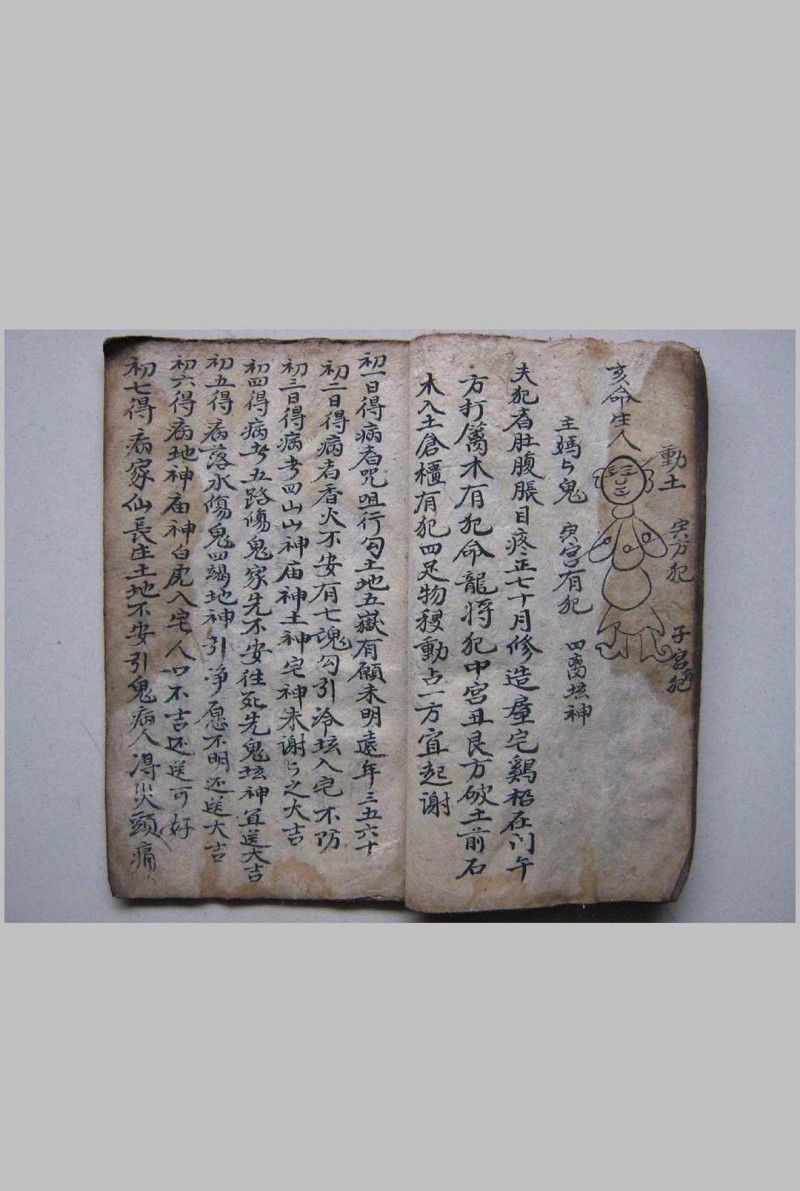 亥命生人
動土
寅方犯
子宮犯
主媽与鬼 寅宮有犯 四离坛神
夫犯者肚腹脹目疼正七十月修造 宅鷄栖在门午
方打篱木有犯命龍將犯中宮丑艮方破土前石
木入土倉櫃有犯四足物秽動占一方宜起谢
初一日得病者咒咀行勾土地五嶽有願未明遠年三五六十
初二日得病者香火不安有七魂勾引冷坛入宅不防
初三日得病者四山山神庙神土神宅神未谢与之大吉
初四得病者五路傷鬼家先不安往死先鬼坛神宜送大吉
初五得病落水傷鬼四竭地神引净愿不明还送大吉
初六得病地神庙神白虎入宅人口不吉还送可好
初七得病家仙長生土地不安引鬼病人得災頭痛